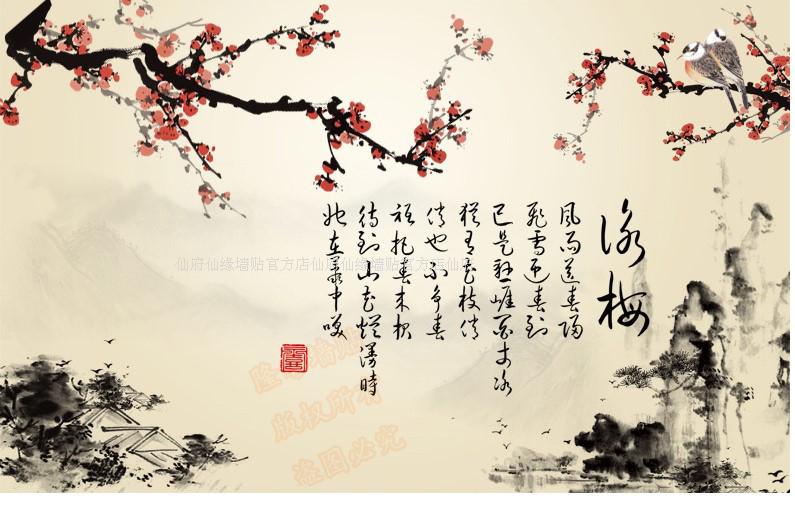 咏梅
风雨送春归
飞雪迎春到
已是悬崖百丈冰
犹有花枝俏
俏也不争春
只把春来报
待到山花烂漫時
她在丛中笑
仙府仙缘墙贴官方店仙府仙缘墙贴官方店仙府
版权所有
盗图必究